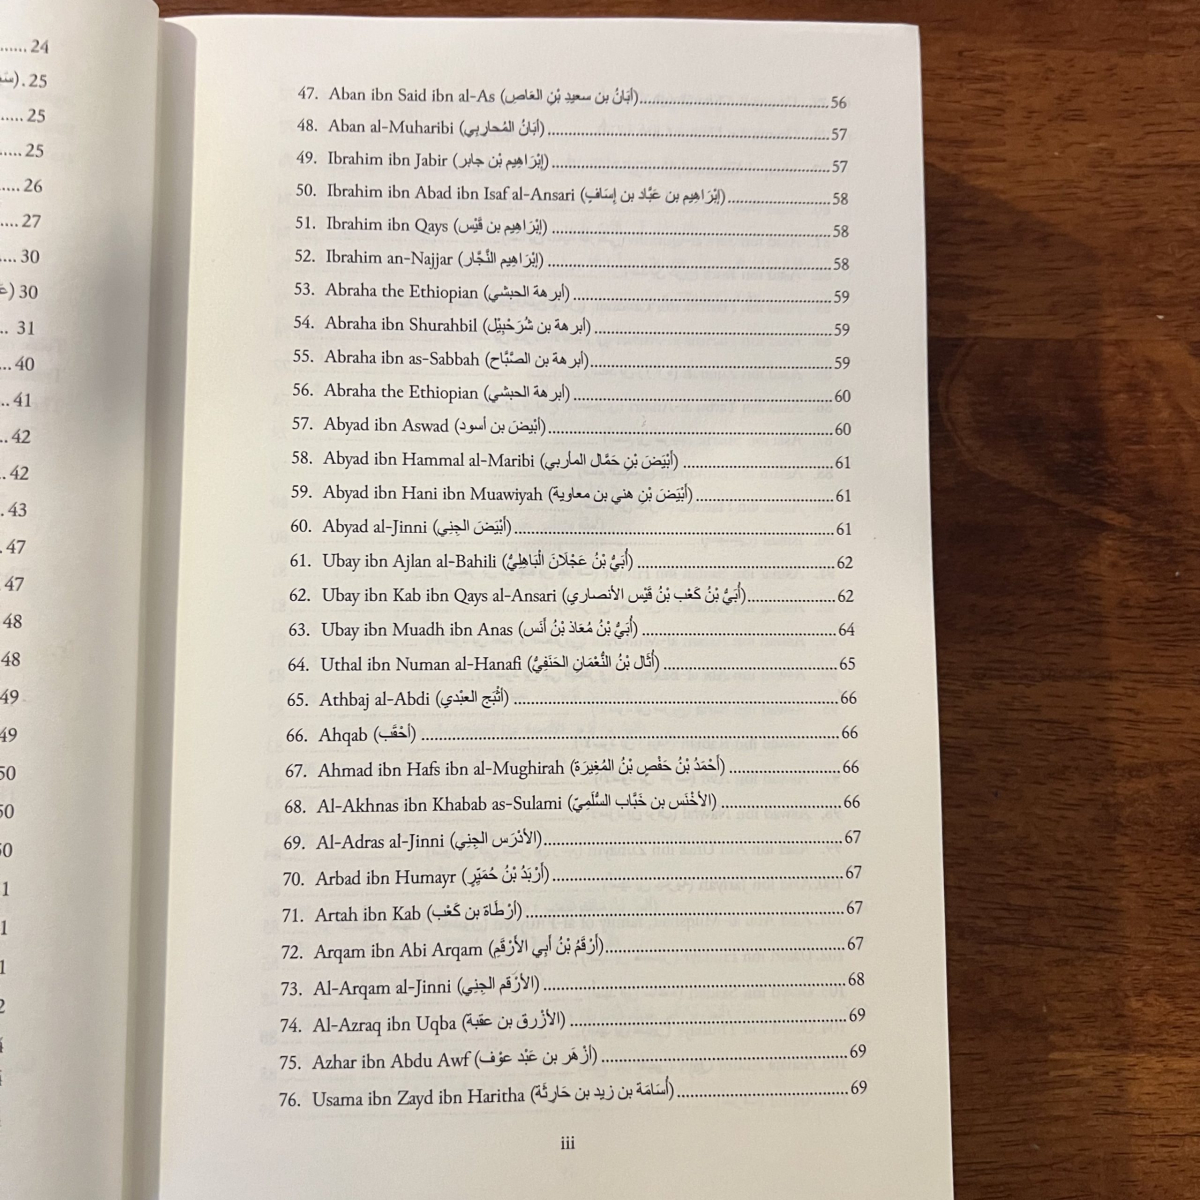 ...... 24
25
..... 25
..... 25
..... 26
.... 27
.... 30
30
.. 31
... 40
.. 41
.. 42
.. 42
. 43
. 47
47
48
48
49
49
50
50
50
1
1
1
2
47. Aban ibn Said ibn al-As (أَبَانُ بن سعيدِ بْنِ العَاصِ)..........56
48. Aban al-Muharibi (أَبَانُ المُحاربِي)..........57
49. Ibrahim ibn Jabir (إبْرَاهِيم بْن جابر)..........57
50. Ibrahim ibn Abad ibn Isaf al-Ansari (إبْرَاهِيم بن عَبَّاد بن إسَافٍ)..........58
51. Ibrahim ibn Qays (إبْرَاهِيم بن قَيْس)..........58
52. Ibrahim an-Najjar (إبْرَاهِيم النَّجَّار)..........58
53. Abraha the Ethiopian (أبرهة الحبشي)..........59
54. Abraha ibn Shurahbil (أبرهة بن شُرَحْبِيْل)..........59
55. Abraha ibn as-Sabbah (أبرهة بن الصَّبَّاح)..........59
56. Abraha the Ethiopian (أبرهة الحبشي)..........60
57. Abyad ibn Aswad (أبْيضَ بن أسود)..........60
58. Abyad ibn Hammal al-Maribi (أَبْيَضَ بْنِ حَمَّال المأربي)..........61
59. Abyad ibn Hani ibn Muawiyah (أَبْيَضَ بْنِ هني بن معاوية)..........61
60. Abyad al-Jinni (أَبْيَضَ الجِنِي)..........61
61. Ubay ibn Ajlan al-Bahili (أُبَيُّ بْنُ عَجْلَانَ الْبَاهِلِيُّ)..........62
62. Ubay ibn Kab ibn Qays al-Ansari (أُبَيُّ بْنُ كَعْب بْنُ قَيْس الأنصاري)..........62
63. Ubay ibn Muadh ibn Anas (أُبَيُّ بْنُ مُعَاذ بْنُ أَنَس)..........64
64. Uthal ibn Numan al-Hanafi (أُثَال بْنُ النُّعْمَانِ الحَنَفِيُّ)..........65
65. Athbaj al-Abdi (أَثْبَج العبْدي)..........66
66. Ahqab (أحْقَب)..........66
67. Ahmad ibn Hafs ibn al-Mughirah (أَحْمَدُ بْنُ حَفْصٍ بْنُ المُغِيرَة)..........66
68. Al-Akhnas ibn Khabab as-Sulami (الأخْنَس بن خَبَّاب السُّلَمِيّ)..........66
69. Al-Adras al-Jinni (الأدْرَس الجِنِي)..........67
70. Arbad ibn Humayr (أرْبَدُ بْنُ حُمَيِّرٍ)..........67
71. Artah ibn Kab (أرْطَاة بن كَعْب)..........67
72. Arqam ibn Abi Arqam (أَرْقَمُ بْنُ أبي الأَرْقَمِ)..........67
73. Al-Arqam al-Jinni (الأَرْقم الجِنِي)..........68
74. Al-Azraq ibn Uqba (الأزْرق بن عقبة)..........69
75. Azhar ibn Abdu Awf (أزْهَر بن عَبْد عوْف)..........69
76. Usama ibn Zayd ibn Haritha (أُسَامَة بن زيد بن حَارِثَة)..........69
iii